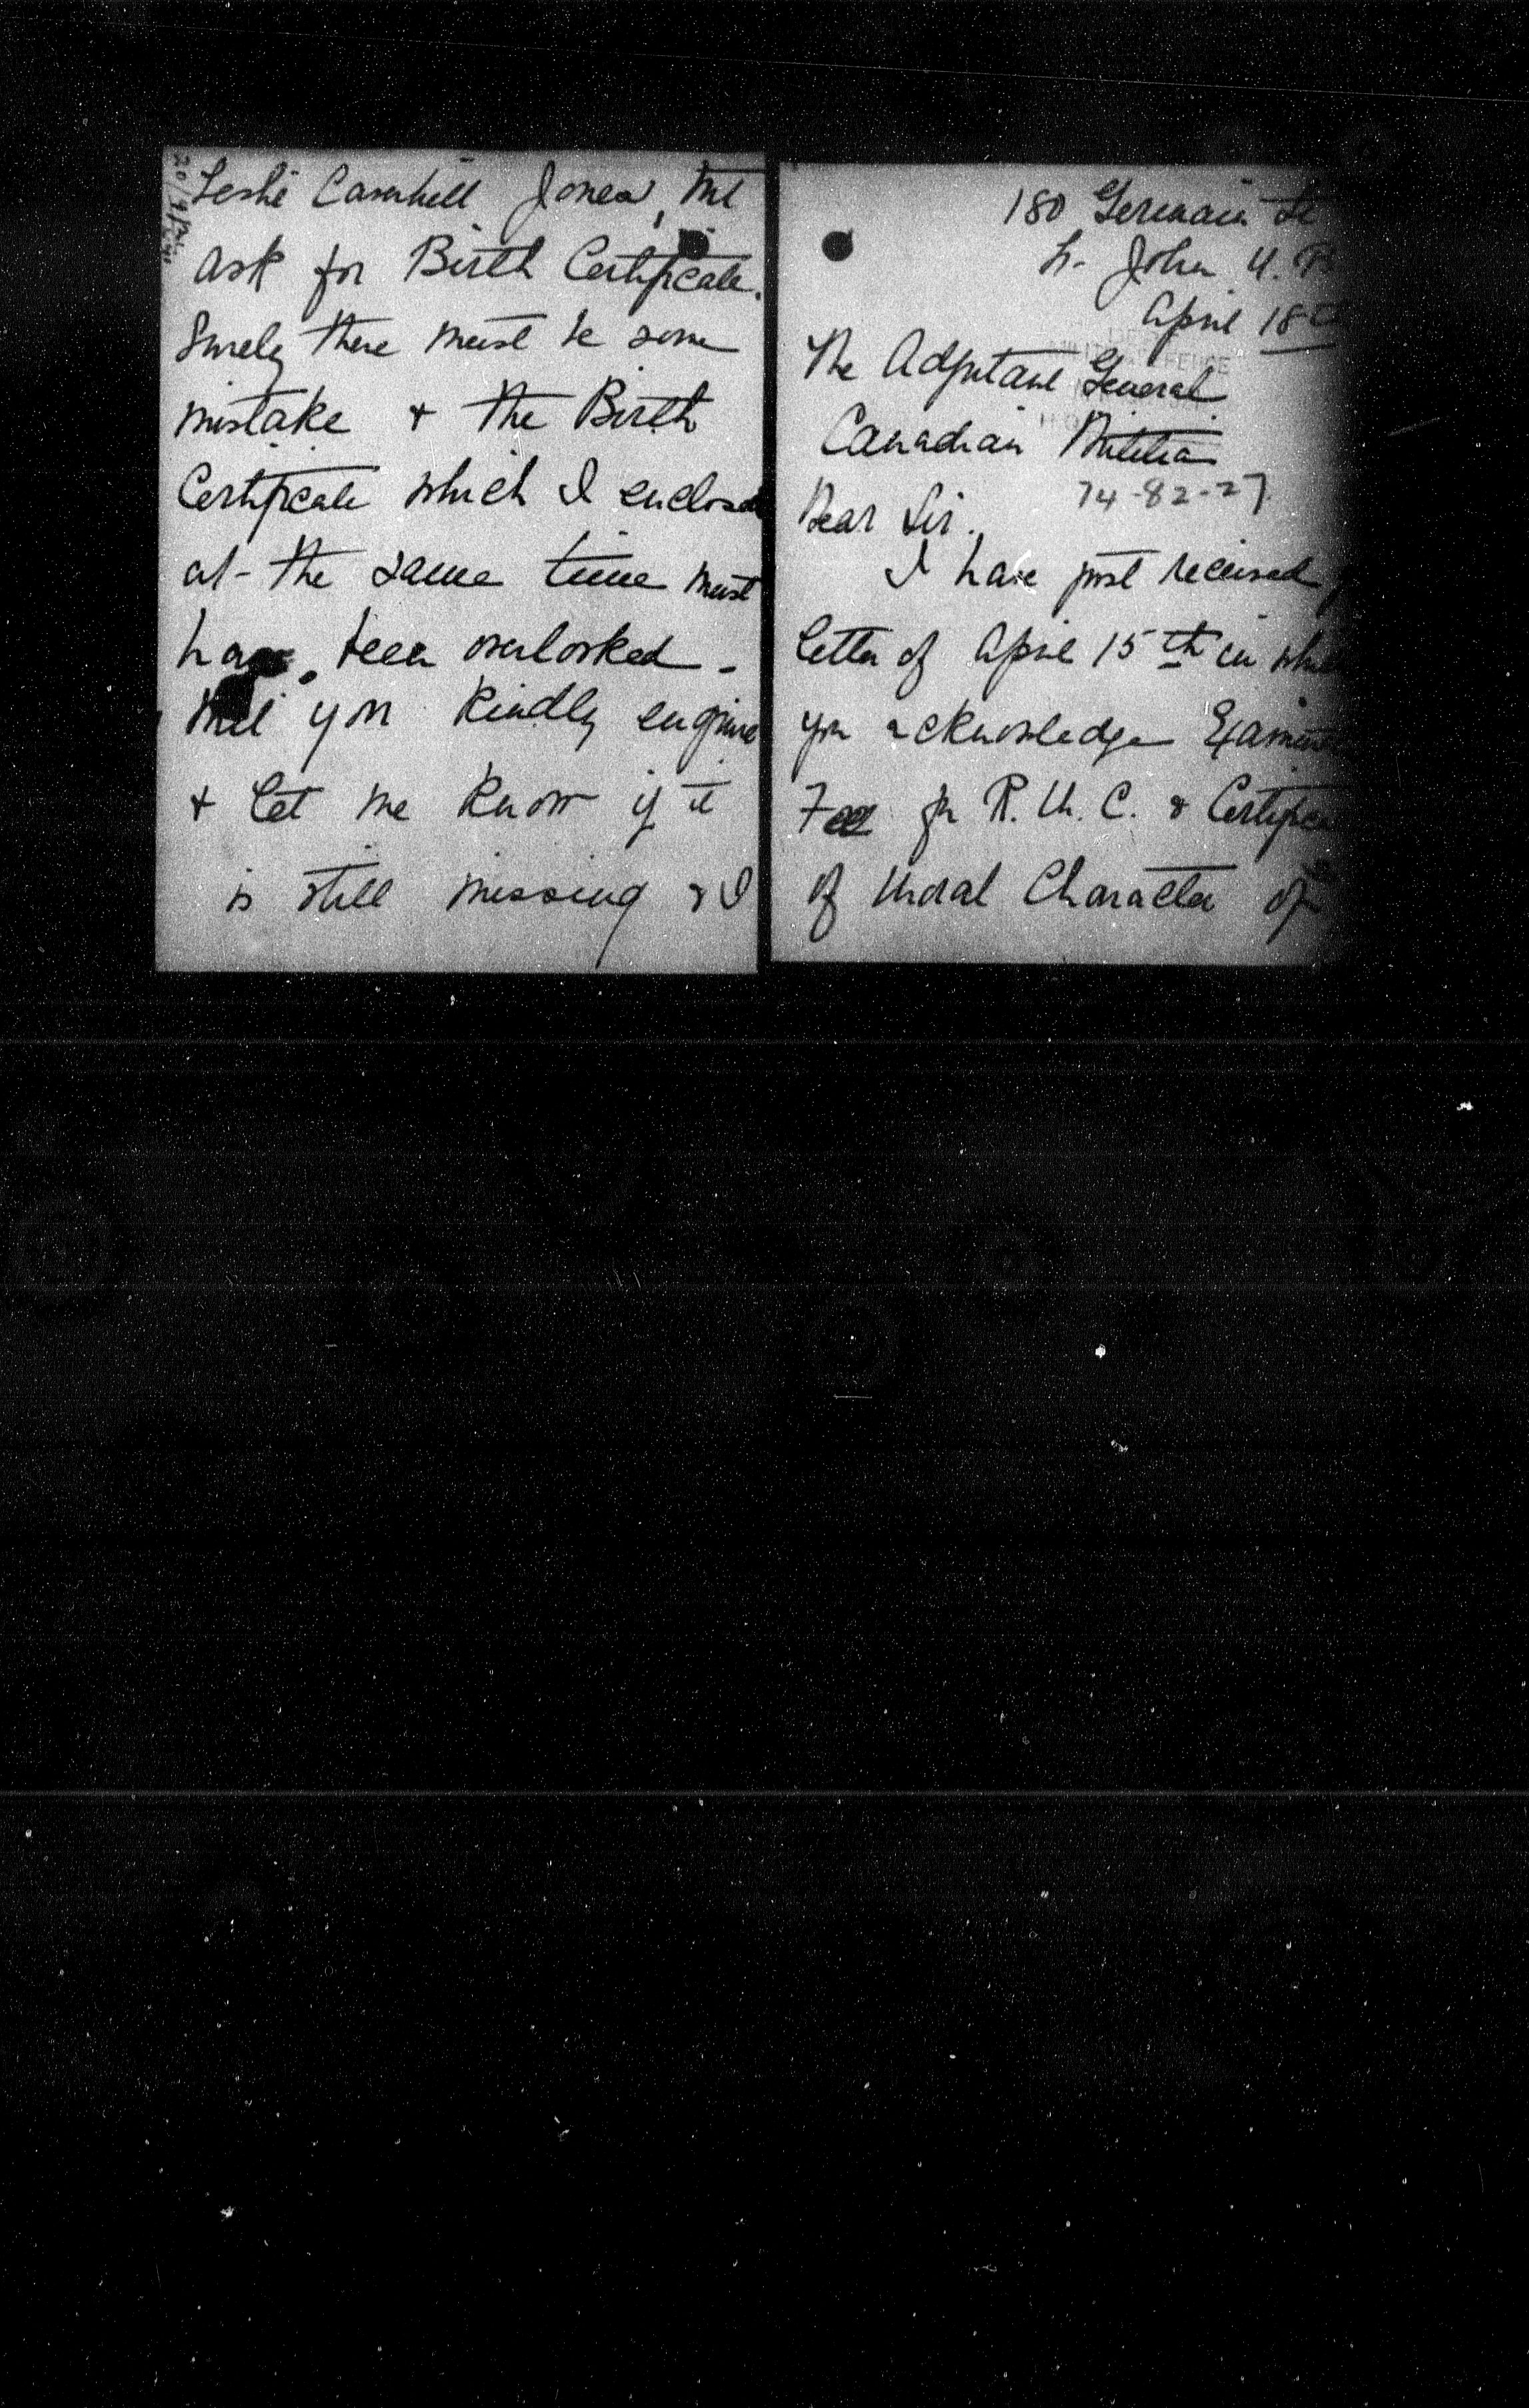 180 Germain St
St. John N. B
April 18th
The Adjutant General
Canadian Militia
74-82-27
Dear Sir.
I have just received
letter of April 15th in which
you acknowledge
Fee for R. M. C. &
of Moral Character of
Leslie Jones,
ask for Birth Certificate.
Surely there must be some
mistake & the Birth
Certificate which I enclosed
at the same time must
have been overlooked -
Will you kindly enquire
& let me know if it
is still missing & I